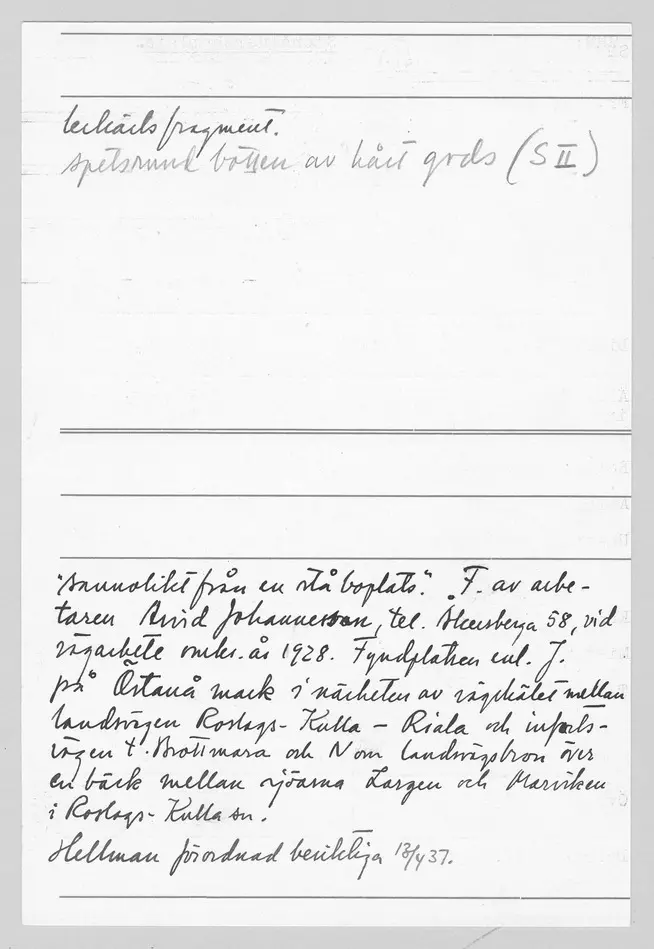 lerkärlsfragment.
spetsrund botten av hårt gods (S II)
"Sannolikt från en stå boplats". F. av arbe-
taren Arvid Johannesson, tel. Åkersberga 58, vid
vägarbete omkr. år 1928. Fyndplatsen enl. J.
på Östanå mark i närheten av vägskälet mellan
landsvägen Roslags-Kulla - Riala och infarts-
vägen t. Brottmara och N om landsvägsbron över
en bäck mellan sjöarna Largen och Marviken
i Roslags-Kulla sn.
Hellman förordnad besiktiga 13/4 37.